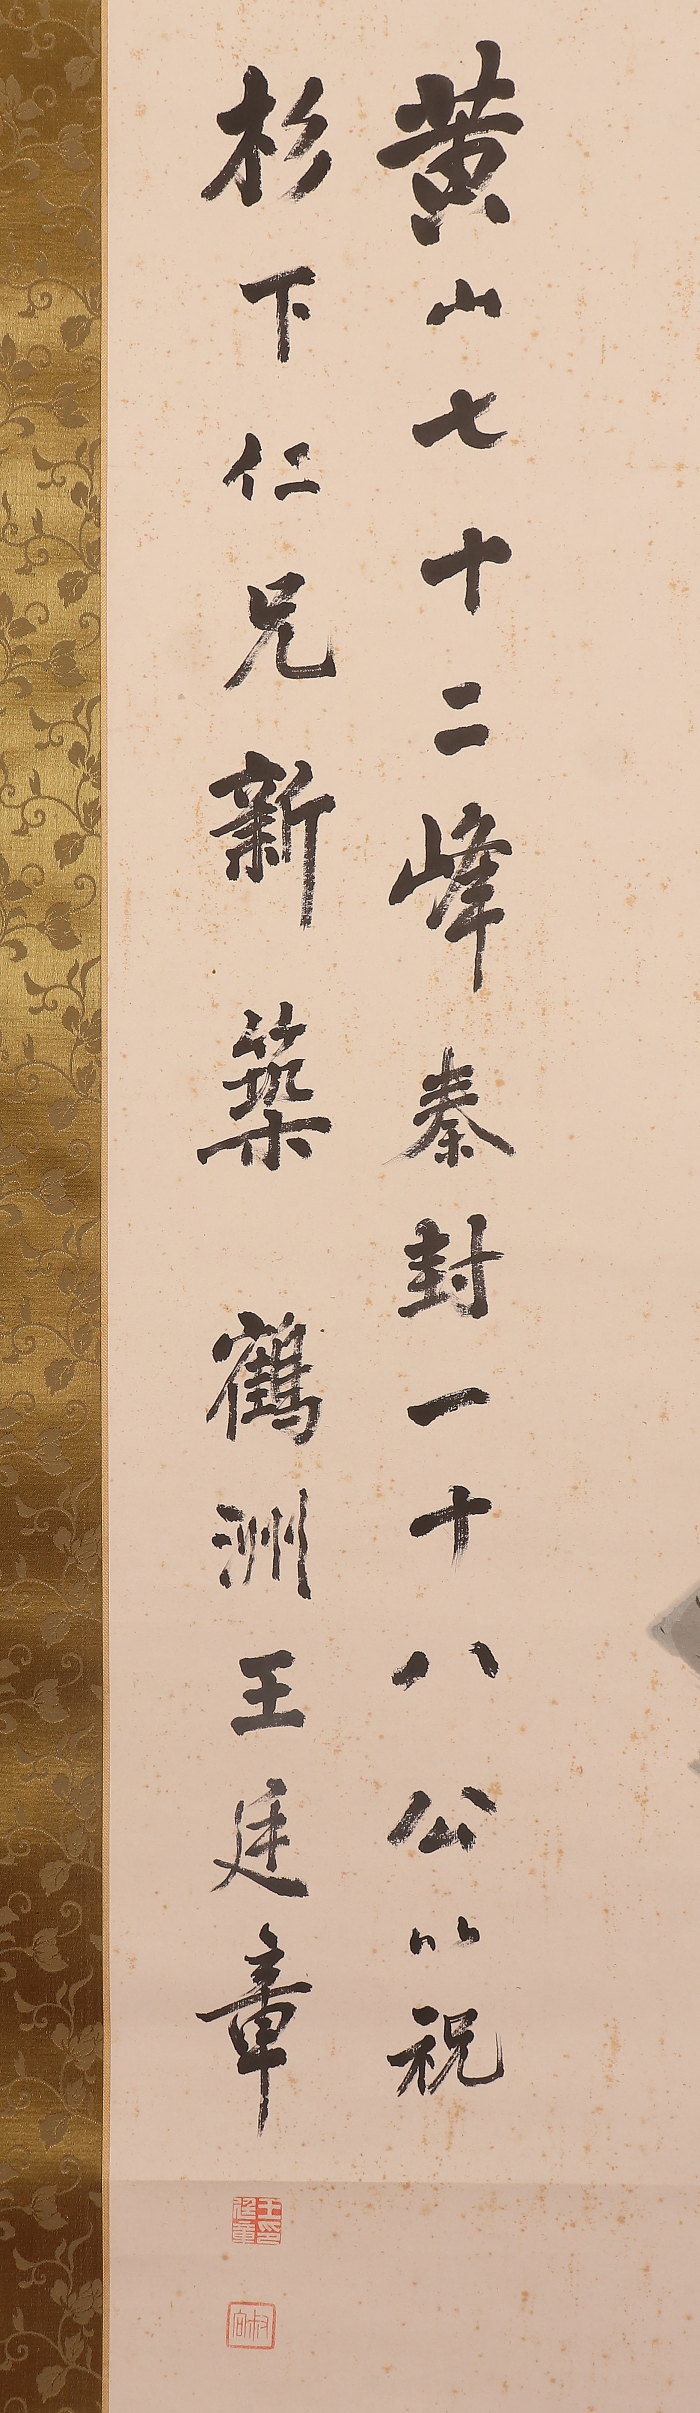 黄山七十二峰秦封一十八公以祝
杉下仁兄新築 鶴洲王廷章
王印廷章